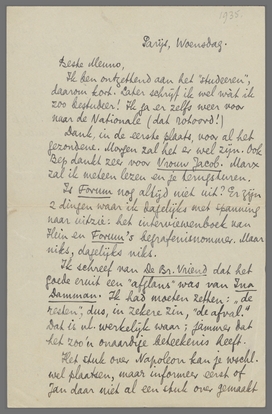 1935.
Parijs, Woensdag.
Beste Menno,
Ik ben ontzettend aan het "studeeren",
daarom kort. Later schrijf ik wel wàt ik
zoo bestudeer! Ik ga er zelfs weer voor
naar de Nationale (dat rotoord!)
Dank, in de eerste plaats, voor al het
gezondene. Morgen zal het er wel zijn. Ook
Bep dankt zeer voor Vrouw Jacob. Marx
zal ik meteen lezen en je terugsturen.
Is Forum nog altijd niet uit? Er zijn
2 dingen waar ik dagelijks met spanning
naar uitzie: het interviewenboek van
Hein en Forum's begrafenisnummer. Maar
niks, dagelijks niks.
Ik schreef van De Br. Vriend dat het
goede eruit een "aflans" was van Ina
Damman. Ik had moeten zetten: "de
resten", dus, in zekere zin, "de afval."
Dat is nl. werkelijk waar; jammer dat
het zoo'n onaardige beteekenis heeft.
Het stuk over Napoleon kan je wschl.
wel plaatsen, maar informeer eerst of
Jan daar niet al een stuk over gemaakt